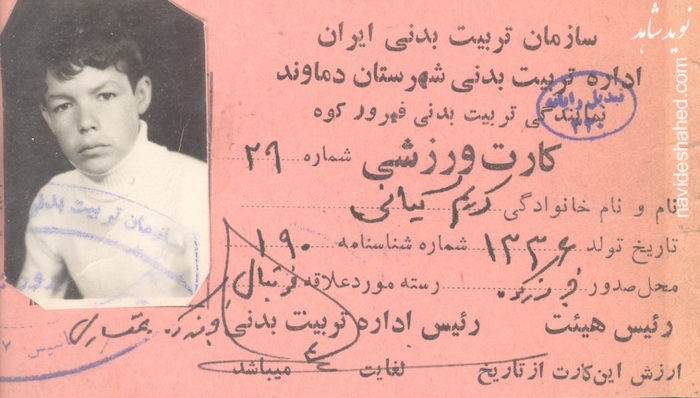 سازمان تربیت بدنی ایران
اداره تربیت بدنی شهرستان دماوند
نمایندگی تربیت بدنی فیروز کوه
کارت ورزشی شماره ۲۹
نام و نام خانوادگی کریم کیانی
تاریخ تولد ۱۳۳۶ شماره شناسنامه ۱۹۰
محل صدور رسته مورد علاقه فوتبال
رئیس هیئت رئیس اداره تربیت بدنی
ارزش این کارت از تاریخ لغایت میباشد
سازمان تربیت بدنی
نوید شاهد
navideshahed.com